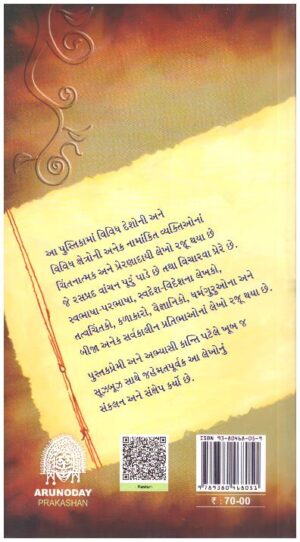 આ પુસ્તિકામાં વિવિધ દેશોની અને
વિવિધ ક્ષેત્રોની અનેક નામાંકિત વ્યક્તિઓનાં
ચિંતનાત્મક અને પ્રેરણાદાયી લેખો રજૂ થયા છે
જે રસપ્રદ વાંચન પૂરું પાડે છે તથા વિચારવા પ્રેરે છે.
સ્વભાષા-પરભાષા, સ્વદેશ-વિદેશના લેખકો,
તત્વચિંતકો, કળાકારો, વૈજ્ઞાનિકો, ધર્મગુરુઓના અને
બીજા અનેક સર્વકાલીન પ્રતિભાઓનાં લેખો રજૂ થયા છે.
પુસ્તકપ્રેમી અને અભ્યાસી કાન્તિ પટેલે ખૂબ જ
સૂઝબૂઝ સાથે જહેમતપૂર્વક આ લેખોનું
સંકલન અને સંક્ષેપ કર્યો છે.
ARUNODAY
PRAKASHAN
ISBN 93-80468-05-9
9789380468051
₹ : 70-00